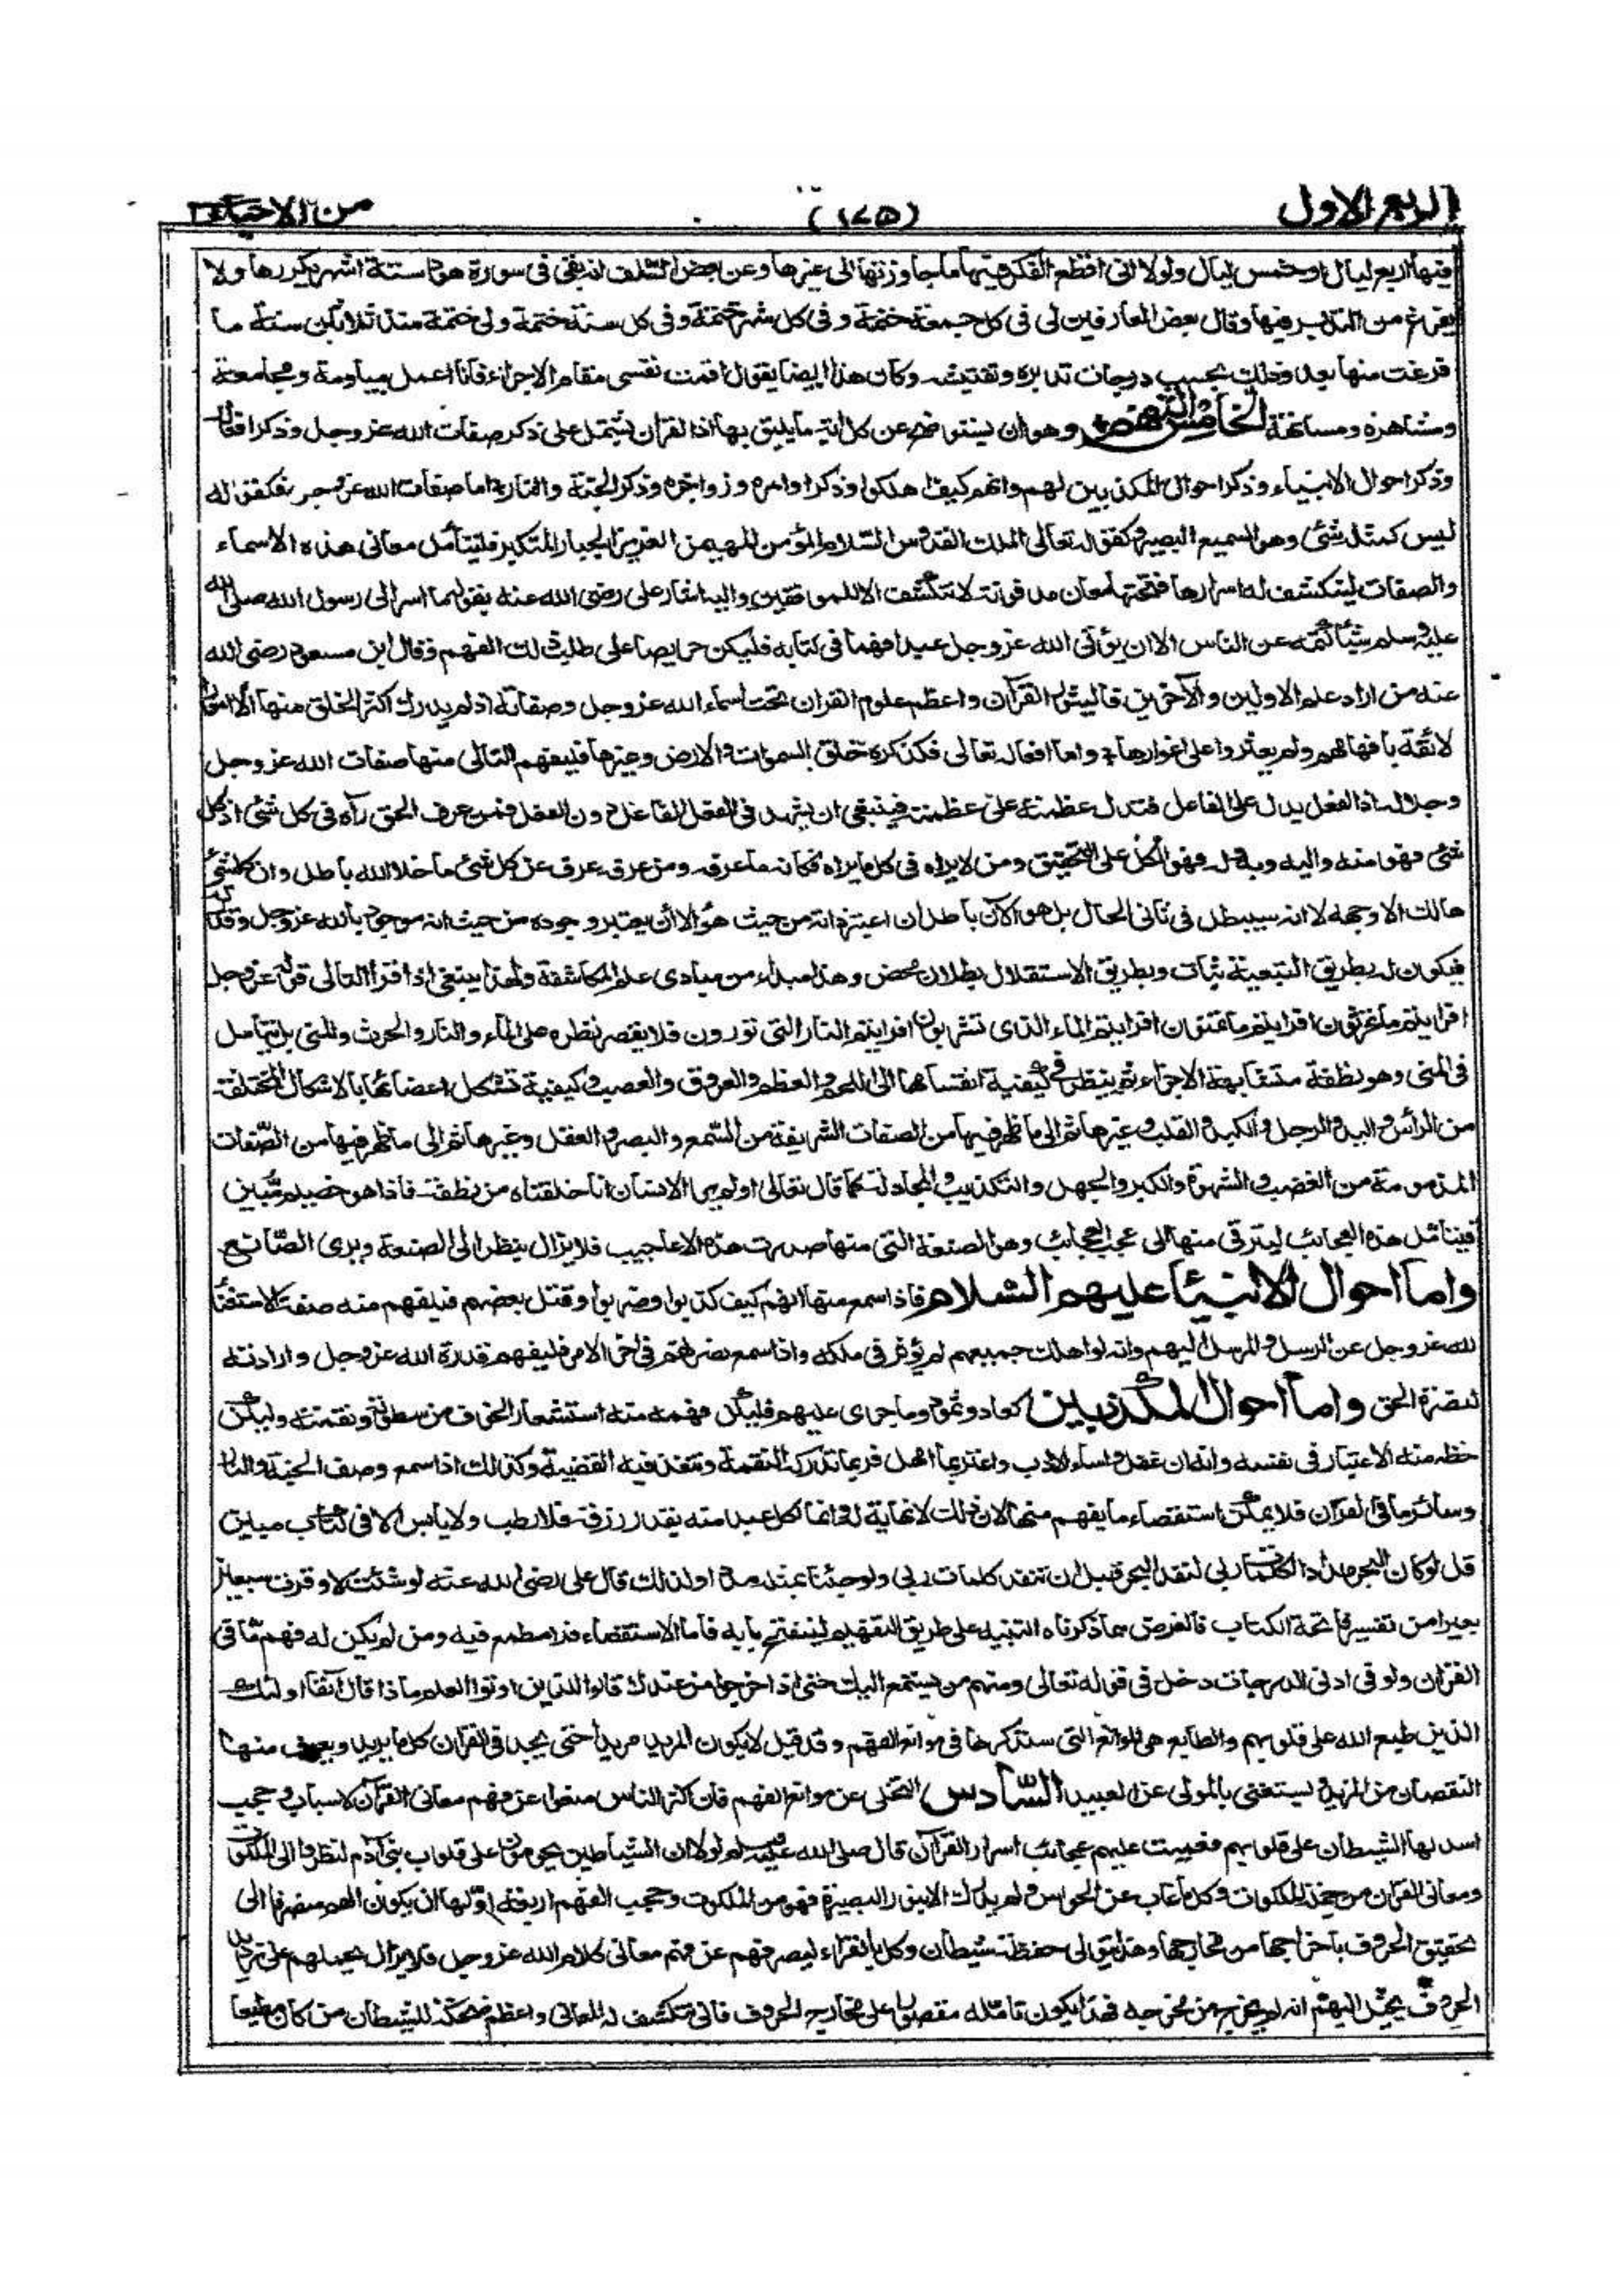 الربع الاول (١٧٥) من الاحياء
فيها اربع ليال او خمس ليال ولولا انى اقطع الفكر فيها ما جاوزتها الى غيرها وعن بعض السلف انه بقى فى سورة هود ستة اشهر يكررها ولا
يفرغ من التدبر فيها وقال بعض العارفين لى فى كل جمعة ختمة وفى كل شهر ختمة وفى كل سنة ختمة ولى ختمة منذ ثلاثين سنة ما
فرغت منها بعد وذلك بحسب درجات تدبره وتفتيشه وكان هذا ايضا يقول اقمت نفسى مقام الاجراء فانا اعمل مياومة ومجامعة
ومشاهرة ومسانهة الخامس التفهم وهو ان يستوضح عن كل اية ما يليق بها اذ القران يشتمل على ذكر صفات الله عز وجل وذكر افعاله
وذكر احوال الانبياء وذكر احوال المكذبين لهم وانهم كيف اهلكوا وذكر اوامره وزواجره وذكر الجنة والنار اما صفات الله عز وجل فكقوله
ليس كمثله شئ وهو السميع البصير وكقوله تعالى الملك القدوس السلام المؤمن المهيمن العزيز الجبار المتكبر فليتأمل معانى هذه الاسماء
والصفات لينكشف له اسرارها فتحتها معان مدفونة لا تنكشف الا للموفقين واليه اشار على رضى الله عنه بقوله ما اسر الى رسول الله صلى الله
عليه وسلم شيئا كتمه عن الناس الا ان يؤتى الله عز وجل عبدا فهما فى كتابه فليكن حريصا على طلب ذلك الفهم وقال ابن مسعود رضى الله
عنه من اراد علم الاولين والآخرين فليثور القرآن واعظم علوم القران تحت اسماء الله عز وجل وصفاته اذ لم يدرك اكثر الخلق منها الا امورا
لائقة بافهامهم ولم يعثروا على اغوارها واما افعاله تعالى فكذكره خلق السموات والارض وغيرها فليفهم التالى منها صفات الله عز وجل
وجلاله اذ الفعل يدل على الفاعل فتدل عظمته على عظمته فينبغى ان يشهد فى الفعل الفاعل دون الفعل فمن عرف الحق رآه فى كل شئ اذ كل
شئ فهو منه واليه وبه وله فهو الكل على التحقيق ومن لا يراه فى كل ما يراه فكانه ما عرفه ومن عرفه عرف ان كل شئ ما خلا الله باطل وان كل شئ
هالك الا وجهه لا انه سيبطل فى ثانى الحال بل هو الآن باطل ان اعتبر ذاته من حيث هو الا أن يعتبر وجوده من حيث انه موجود بالله عز وجل وقدرته
فيكون له بطريق التبعية ثبات وبطريق الاستقلال بطلان محض وهذا مبداء من مبادى علم المكاشفة ولهذا ينبغى اذا قرأ التالى قوله عز وجل
افرايتم ما تحرثون افرايتم ما تمنون افرايتم الماء الذى تشربون افرايتم النار التى تورون فلا يقصر نظره على الماء والنار والحرث والمنى بل يتأمل
فى المنى وهو نطفة متشابهة الاجزاء ثم ينظر فى كيفية انقسامها الى اللحم والعظم والعروق والعصب وكيفية تشكل اعضائها بالاشكال المختلفة
من الرأس واليد والرجل والكبد والقلب وغيرها ثم الى ما ظهر فيها من الصفات الشريفة من السمع والبصر والعقل وغيرها ثم الى ما ظهر فيها من الصفات
المذمومة من الغضب والشهوة والكبر والجهل والتكذيب والمجادلة كما قال تعالى اولم ير الانسان انا خلقناه من نطفة فاذا هو خصيم مبين
فيتأمل هذه العجائب ليترقى منها الى عجب العجائب وهو الصنعة التى منها صدرت هذه الاعاجيب فلا يزال ينظر الى الصنعة ويرى الصانع
واما احوال الانبياء عليهم السلام فاذا سمع منها انهم كيف كذبوا وضربوا وقتل بعضهم فليفهم منه صفة الاستغناء
لله عز وجل عن الرسل والمرسل اليهم وانه لو اهلك جميعهم لم يؤثر فى ملكه واذا سمع نصرتهم فى اخر الامر فليفهم قدرة الله عز وجل وارادته
لنصرة الحق واما احوال المكذبين كعاد وثمود وما جرى عليهم فليكن فهمه منه استشعار الخوف من سطوته ونقمته وليكن
حظه منه الاعتبار فى نفسه وانه ان غفل واساء الادب واغتر بما امهل فربما تدركه النقمة وتنفذ فيه القضية وكذلك اذا سمع وصف الجنة والنار
وسائر ما فى القرآن فلا يمكن استقصاء ما يفهم منها لان ذلك لا نهاية له وانما لكل عبد منه بقدر رزقه فلا رطب ولا يابس الا فى كتاب مبين
قل لو كان البحر مدادا لكلمات ربى لنفد البحر قبل ان تنفد كلمات ربى ولو جئنا بمثله مددا ولذلك قال على رضى الله عنه لو شئت لاوقرت سبعين
بعيرا من تفسير فاتحة الكتاب فالغرض مما ذكرناه التنبيه على طريق التفهيم لينفتح بابه فاما الاستقصاء فلا مطمع فيه ومن لم يكن له فهم ما فى
القران ولو فى ادنى الدرجات دخل فى قوله تعالى ومنهم من يستمع اليك حتى اذا خرجوا من عندك قالوا للذين اوتوا العلم ماذا قال آنفا اولئك
الذين طبع الله على قلوبهم والطابع هى الموانع التى سنذكرها فى موانع الفهم وقد قيل لا يكون المريد مريدا حتى يجد فى القران كل ما يريد ويعرف منها
النقصان من المزيد ويستغنى بالمولى عن العبيد السادس التخلى عن موانع الفهم فان اكثر الناس منعوا عن فهم معانى القرآن لاسباب وحجب
اسدلها الشيطان على قلوبهم فعميت عليهم عجائب اسرار القرآن قال صلى الله عليه وسلم لولا ان الشياطين يحومون على قلوب بنى آدم لنظروا الى الملكوت
ومعانى القران من جملة الملكوت وكل ما غاب عن الحواس ولم يدرك الا بنور البصيرة فهو من الملكوت وحجب الفهم اربعة اولها ان يكون الهم منصرفا الى
تحقيق الحروف باخراجها من مخارجها وهذا يتولى حفظه شيطان وكل بالقراء ليصرفهم عن فهم معانى كلام الله عز وجل فلا يزال يحملهم على ترديد
الحروف يخيل اليهم انه لم يخرج من مخرجه فهذا يكون تامله مقصورا على مخارج الحروف فانى تنكشف له المعانى واعظم ضحكة للشيطان من كان مطيعا